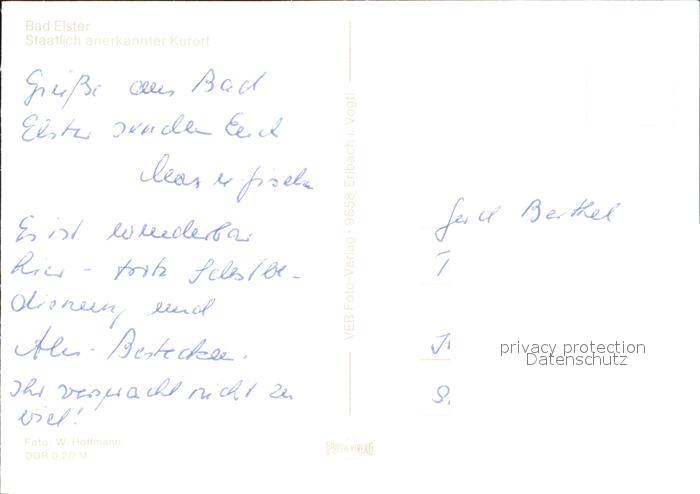 Bad Elster
Staatlich anerkannter Kurort
Grüße aus Bad
Elster senden Euch
Max u Gisela
Es ist wunderbar
hier - trotz Selstbe-
dienung und
Alu-Bestecken.
Ihr verspracht nicht zu
viel!
Foto: W. Hoffmann
DDR 0,20 M
VEB Foto-Verlag · 9658 Erlbach i. Vogtl.
VERLAG
Gerd Barthel
T
J.
S.
privacy protection
Datenschutz